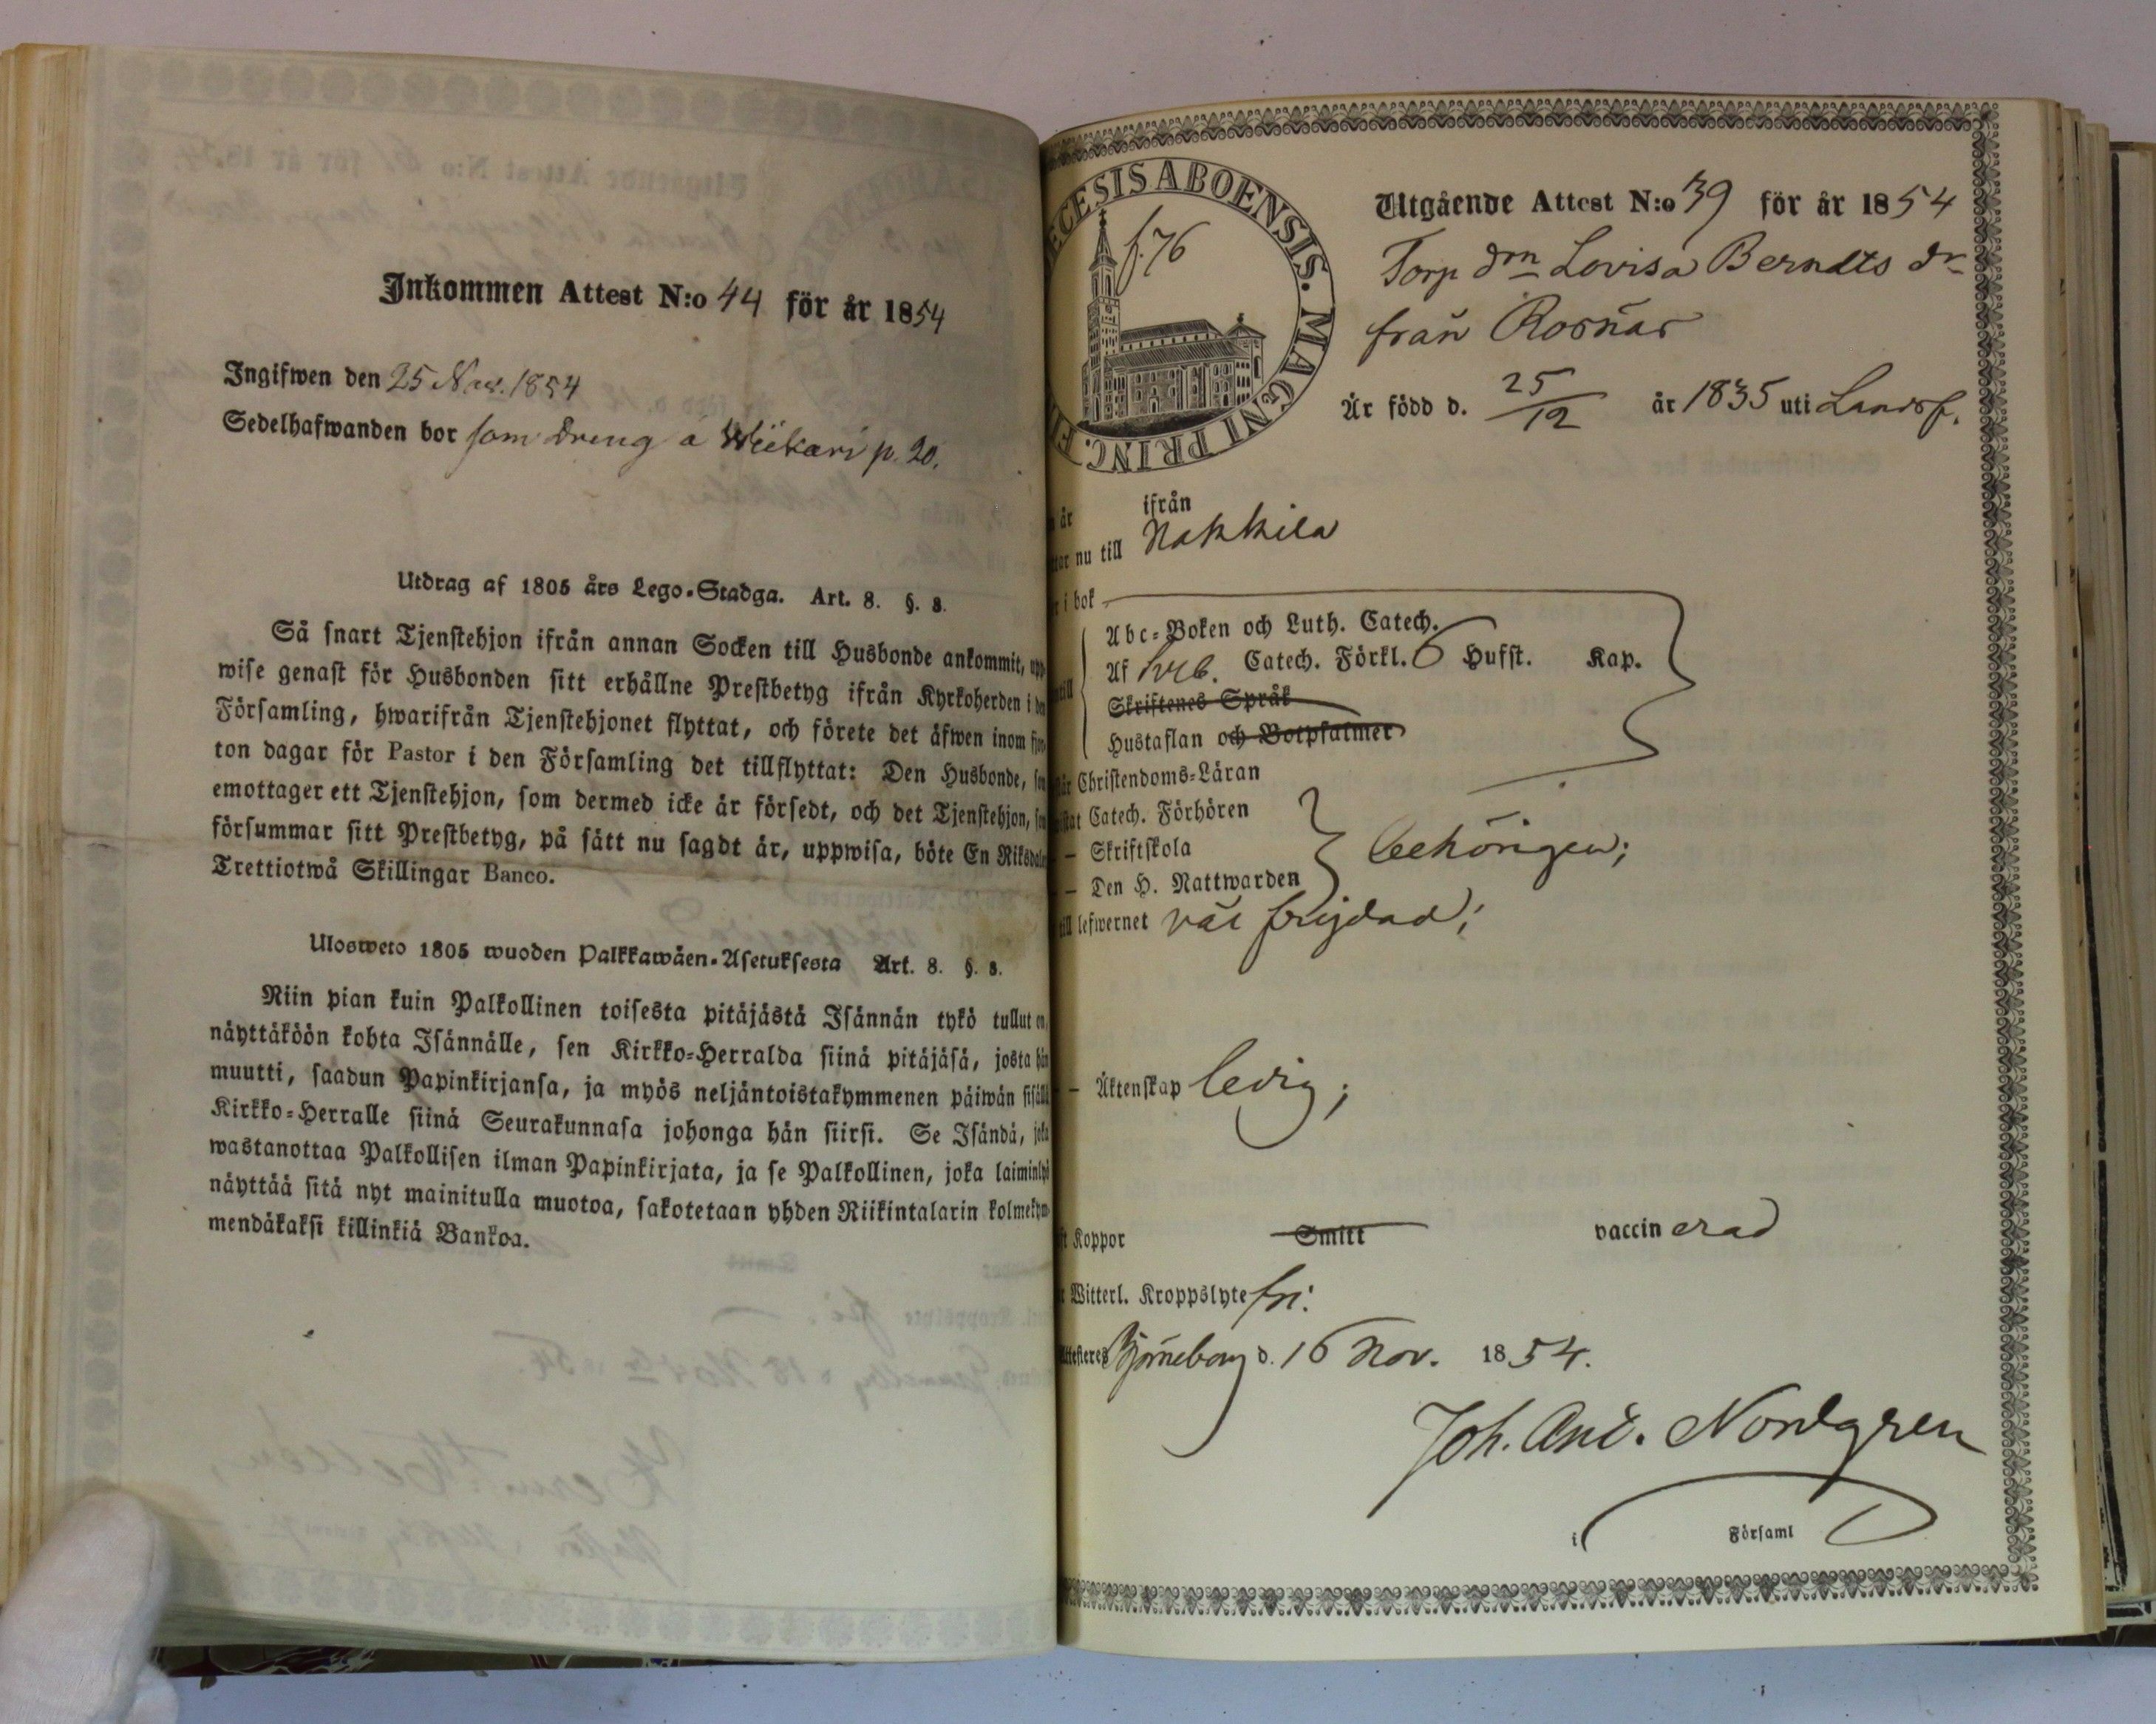 Inkommen Attest N:o 44 för år 1854
Ingifwen den 25 Nov. 1854
Sedelhafwanden bor som dreng å Wiikari p. 20.
Utdrag af 1805 års Lego-Stadga. Art. 8. §. 8.
Så snart Tjenstehjon ifrån annan Socken till Husbonde ankommit, upp-
wise genast för Husbonden sitt erhållne Prestbetyg ifrån Kyrkoherden i den
Församling, hwarifrån Tjenstehjonet flyttat, och förete det äfwen inom fjor-
ton dagar för Pastor i den Församling det tillflyttat: Den Husbonde, som
emottager ett Tjenstehjon, som dermed icke är försedt, och det Tjenstehjon, som
försummar sitt Prestbetyg, på sätt nu sagdt är, uppwisa, böte En Riksdaler
Trettiotwå Skillingar Banco.
Ulosweto 1805 wuoden Palkkawäen-Asetuksesta Art. 8. §. 8.
Niin pian kuin Palkollinen toisesta pitäjästä Isännän tykö tullut on,
näyttäköön kohta Isännälle, sen Kirkko-Herralda siinä pitäjäsä, josta hän
muutti, saadun Papinkirjansa, ja myös neljäntoistakymmenen päiwän sisällä
Kirkko-Herralle siinä Seurakunnasa johonga hän siirsi. Se Isändä, joka
wastanottaa Palkollisen ilman Papinkirjata, ja se Palkollinen, joka laiminlyö
näyttää sitä nyt mainitulla muotoa, sakotetaan yhden Riikintalarin kolmekym-
mendäkaksi killinkiä Bankoa.
ECESIS ABOENSIS. MAGNI PRINC. F
f. 76
Utgående Attest N:o 39 för år 1854
Torp drn Lovisa Berndts dr
från Rosnäs
Är född d. 25/12 år 1835 uti Landsf.
år ifrån
nu till Nakkila
i bok
Abc-Boken och Luth. Catech.
Af Sveb. Catech. Förkl. 6 Hufst. Kap.
Skriftenes Språk
Hustaflan och Botpsalmer
Christendoms-Läran
Catech. Förhören
— Skriftskola
behörigen;
— Den H. Nattwarden
till lefwernet väl frejdad;
— Äktenskap ledig;
Koppor Smitt vaccinerad
Witterl. Kroppslyte fri.
Attesteres Björneborg d. 16 Nov. 1854.
Joh. Ant. Nordgren
i Församl